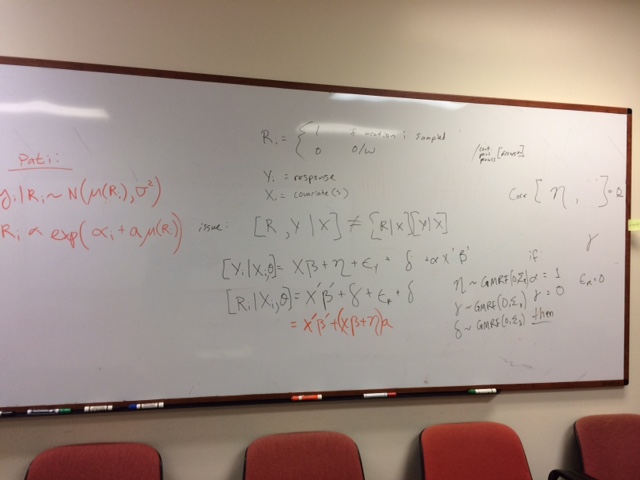 Pati:
y_i | R_i ~ N(μ(R_i), σ²)
R_i ∝ exp(α_i + a μ(R_i))
R_i = { 1 if location i sampled
0 o/w
Y_i = response
X_i = covariate(s)
issue: [R, Y | X] ≠ [R|X][Y|X]
[Y_i | X_i, θ] = Xβ + η + ε_Y + δ + α X'β'
[R_i | X_i, θ] = X'β' + γ + ε_R + δ
= X'β' + (Xβ + η)a
point process
Corr [ η, ] = 0
γ
if
η ~ GMRF(0, Σ_1) α = 1 ε_R = 0
γ ~ GMRF(0, Σ_2) γ = 0
δ ~ GMRF(0, Σ_3) then